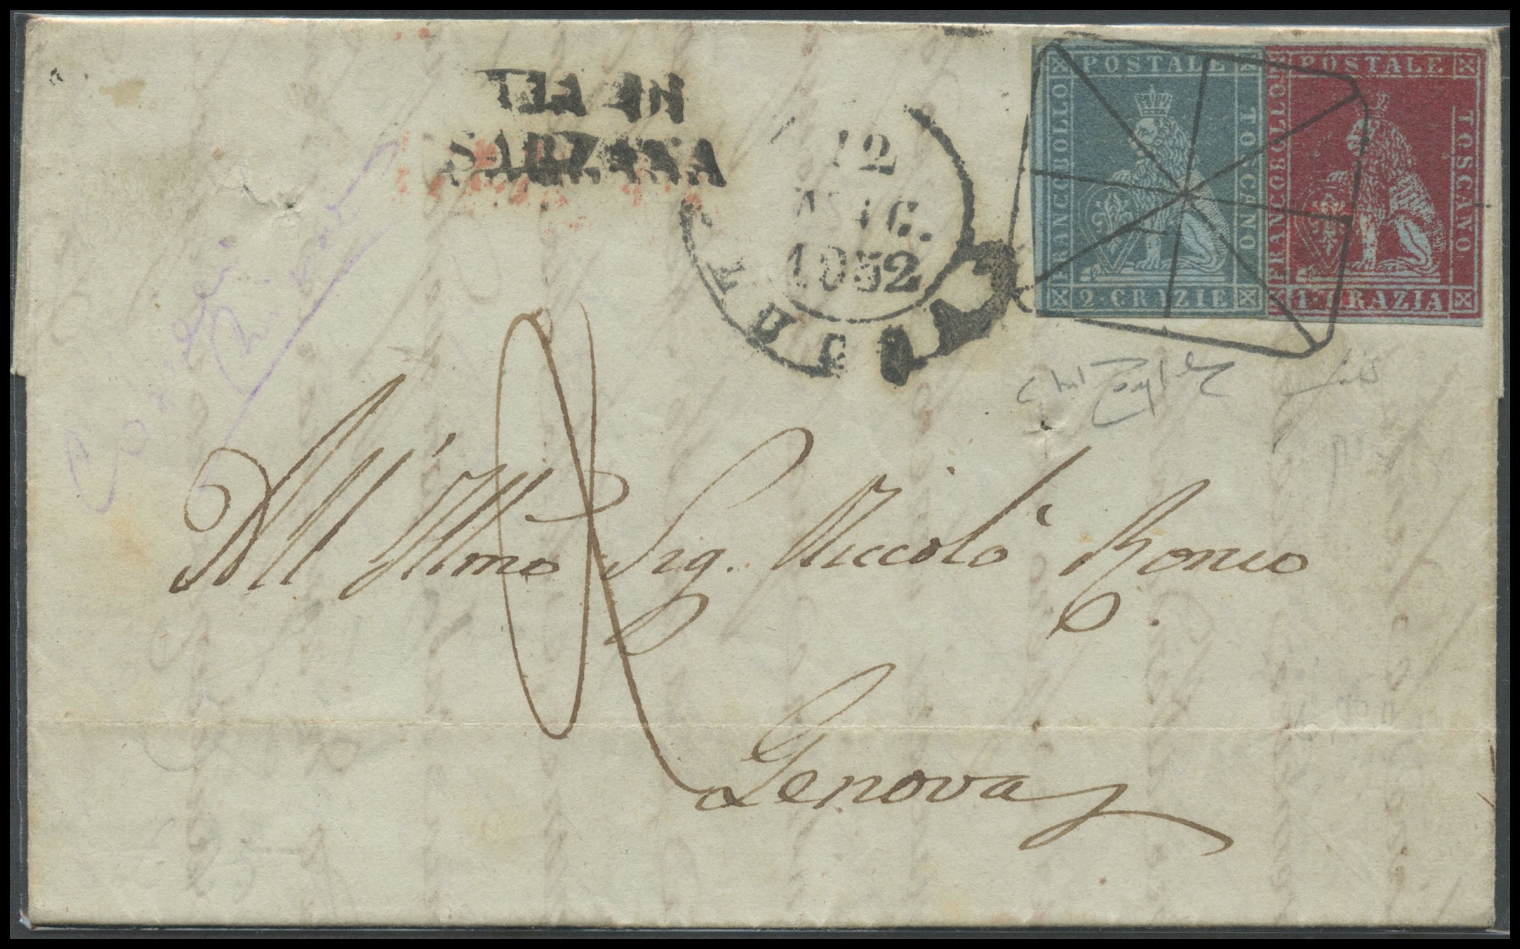 VIA DI
SARZANA
12
AUG.
1852
FRANCOBOLLO
POSTALE
TOSCANO
2·CRAZIE
FRANCOBOLLO
POSTALE
TOSCANO
1·CRAZIA
All' Illmo Sig. Niccolò Ronco
Genova